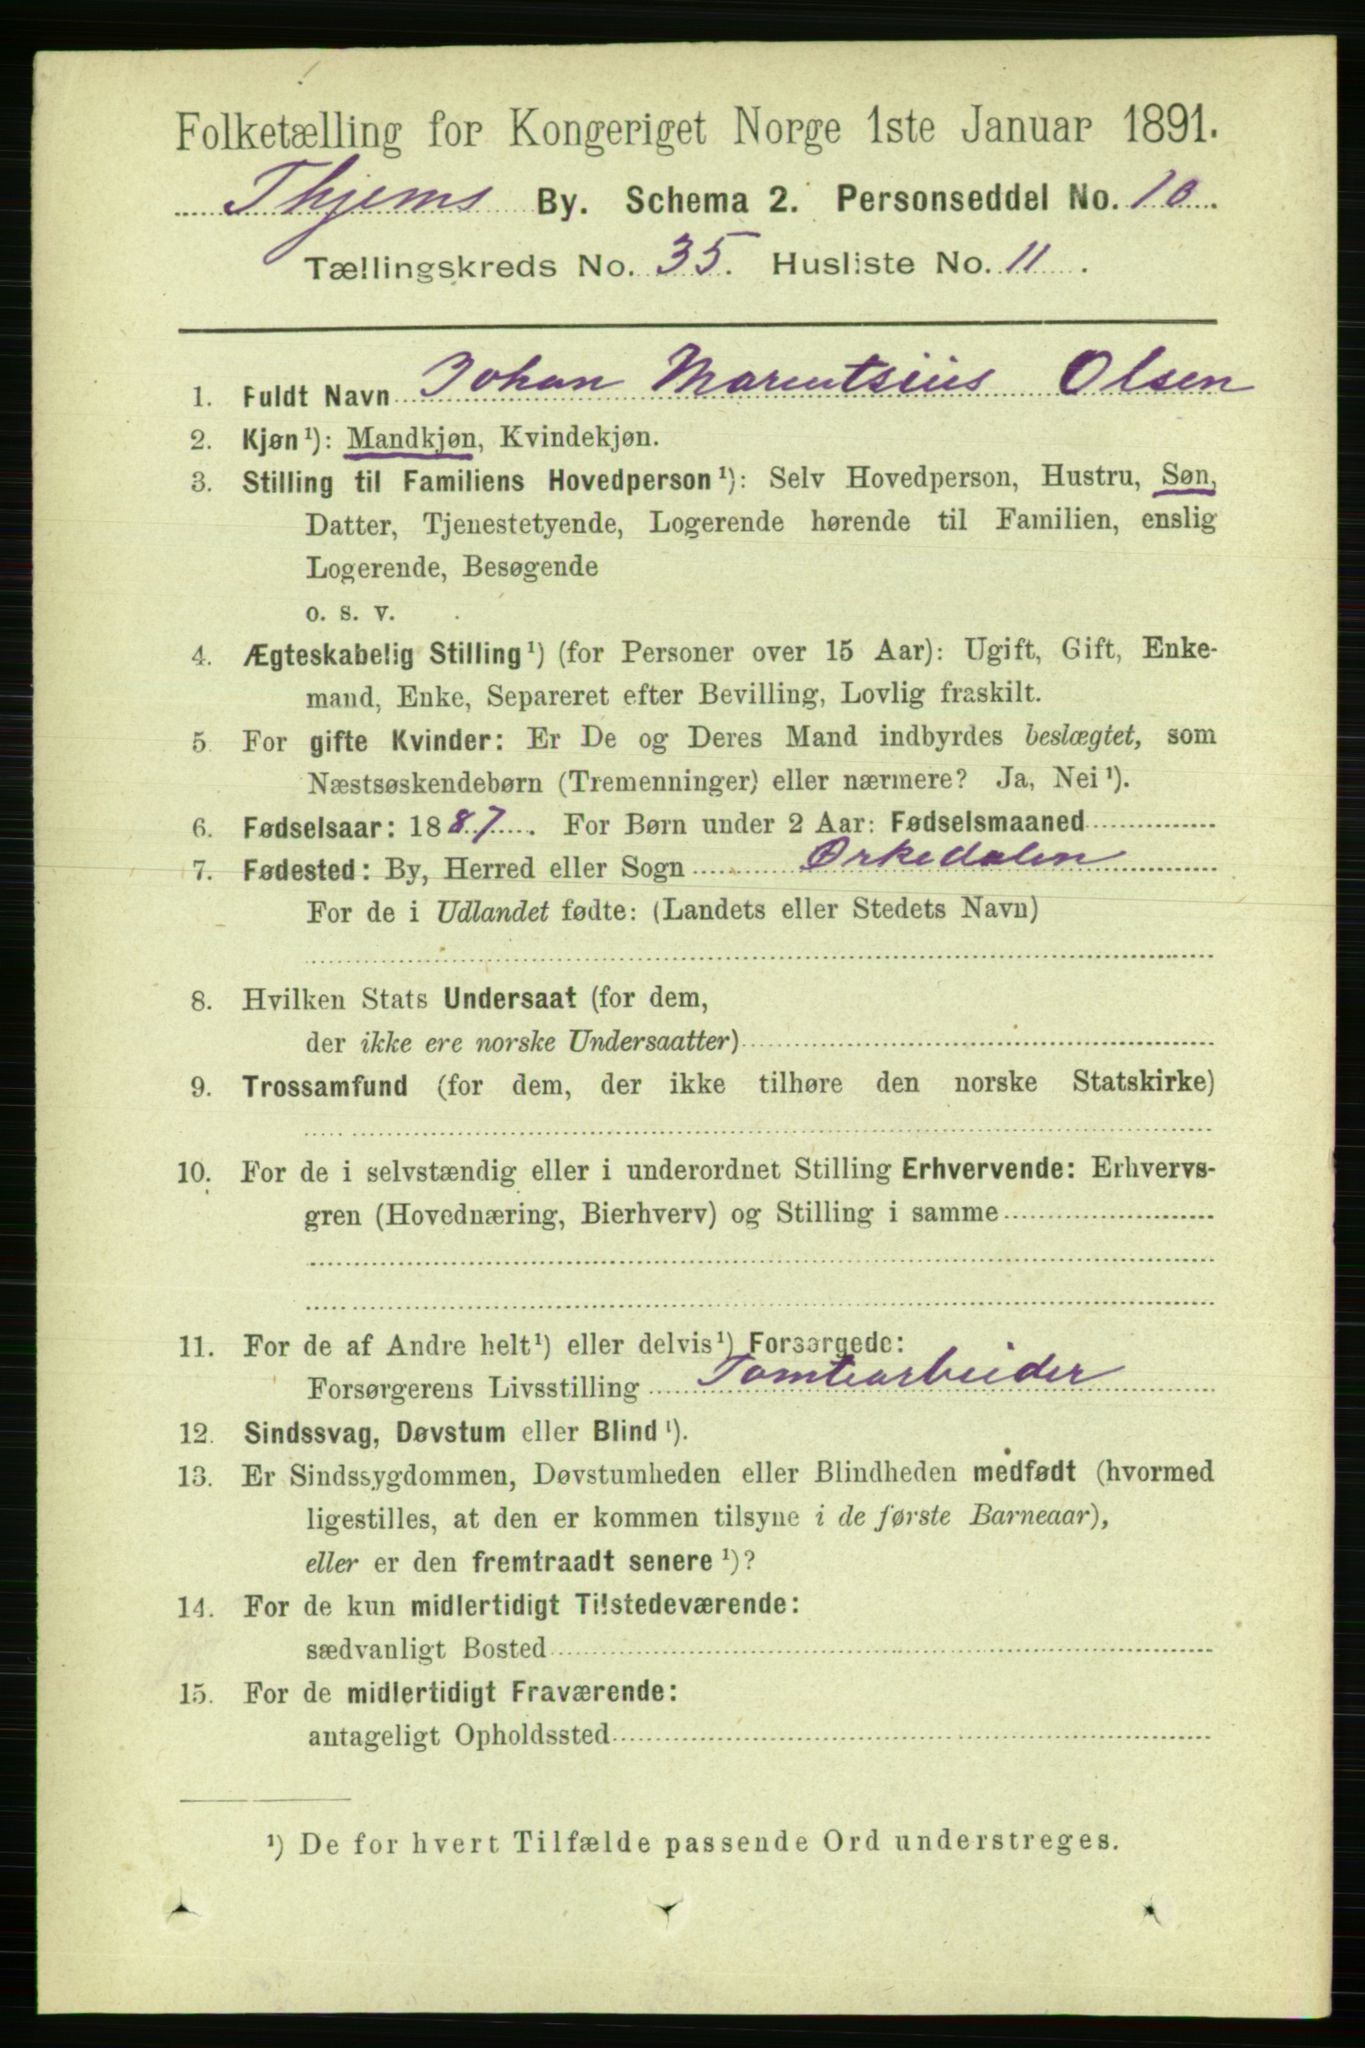 Folketælling for Kongeriget Norge 1ste Januar 1891.
Thjems By. Schema 2. Personseddel No. 10.
Tællingskreds No. 35. Husliste No. 11.
1. Fuldt Navn Johan Marentsius Olsen
2. Kjøn¹): Mandkjøn, Kvindekjøn.
3. Stilling til Familiens Hovedperson¹): Selv Hovedperson, Hustru, Søn,
Datter, Tjenestetyende, Logerende hørende til Familien, enslig
Logerende, Besøgende
o. s. v.
4. Ægteskabelig Stilling¹) (for Personer over 15 Aar): Ugift, Gift, Enke-
mand, Enke, Separeret efter Bevilling, Lovlig fraskilt.
5. For gifte Kvinder: Er De og Deres Mand indbyrdes beslægtet, som
Næstsøskendebørn (Tremenninger) eller nærmere? Ja, Nei¹).
6. Fødselsaar: 1887. For Børn under 2 Aar: Fødselsmaaned
7. Fødested: By, Herred eller Sogn Ørkedalen
For de i Udlandet fødte: (Landets eller Stedets Navn)
8. Hvilken Stats Undersaat (for dem,
der ikke ere norske Undersaatter)
9. Trossamfund (for dem, der ikke tilhøre den norske Statskirke)
10. For de i selvstændig eller i underordnet Stilling Erhvervende: Erhvervs-
gren (Hovednæring, Bierhverv) og Stilling i samme
11. For de af Andre helt¹) eller delvis¹) Forsørgede:
Forsørgerens Livsstilling Tomtearbeider
12. Sindssvag, Døvstum eller Blind¹).
13. Er Sindssygdommen, Døvstumheden eller Blindheden medfødt (hvormed
ligestilles, at den er kommen tilsyne i de første Barneaar),
eller er den fremtraadt senere¹)?
14. For de kun midlertidigt Tilstedeværende:
sædvanligt Bosted
15. For de midlertidigt Fraværende:
antageligt Opholdssted
¹) De for hvert Tilfælde passende Ord understreges.